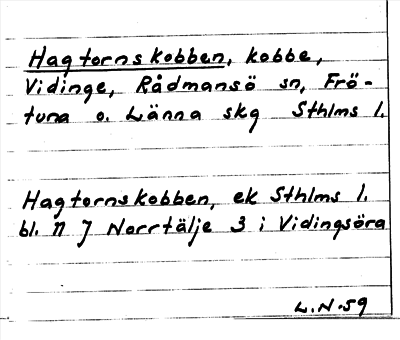 Hagtornskobben, kobbe,
Vidinge, Rådmansö sn, Frö-
tuna o. Länna skg Sthlms l.
Hagtornskobben, ek Sthlms l.
bl. 11 J Norrtälje 3 i Vidingsöra
L.N.59